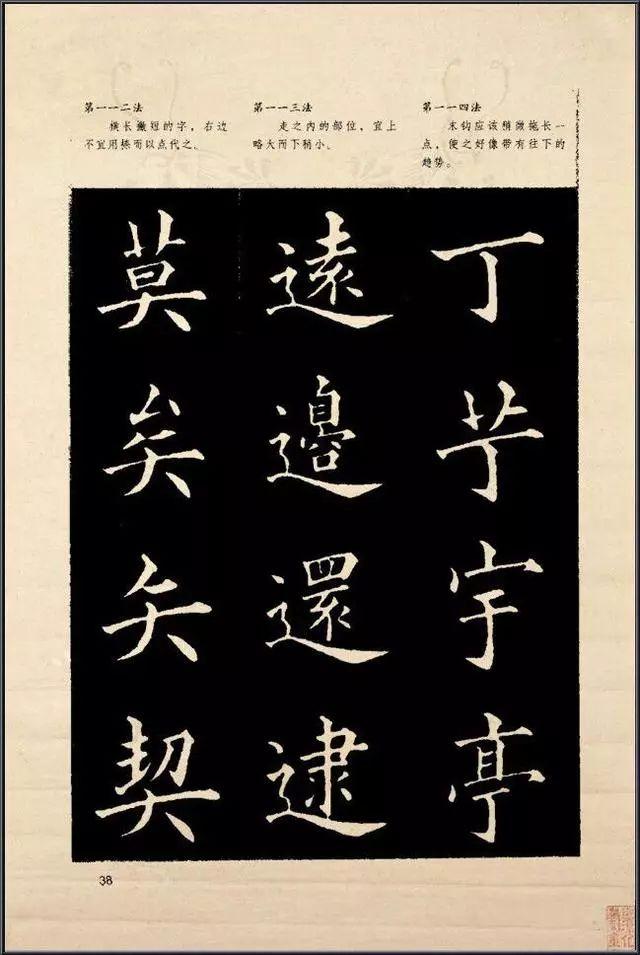 第一一二法
横长撇短的字，右边
不宜用捺而以点代之。
第一一三法
走之内的部位，宜上
略大而下稍小。
第一一四法
末钩应该稍微拖长一
点，使之好像带有往下的
趋势。
莫矣矢契
遠邊還逮
丁艼宇亭
38